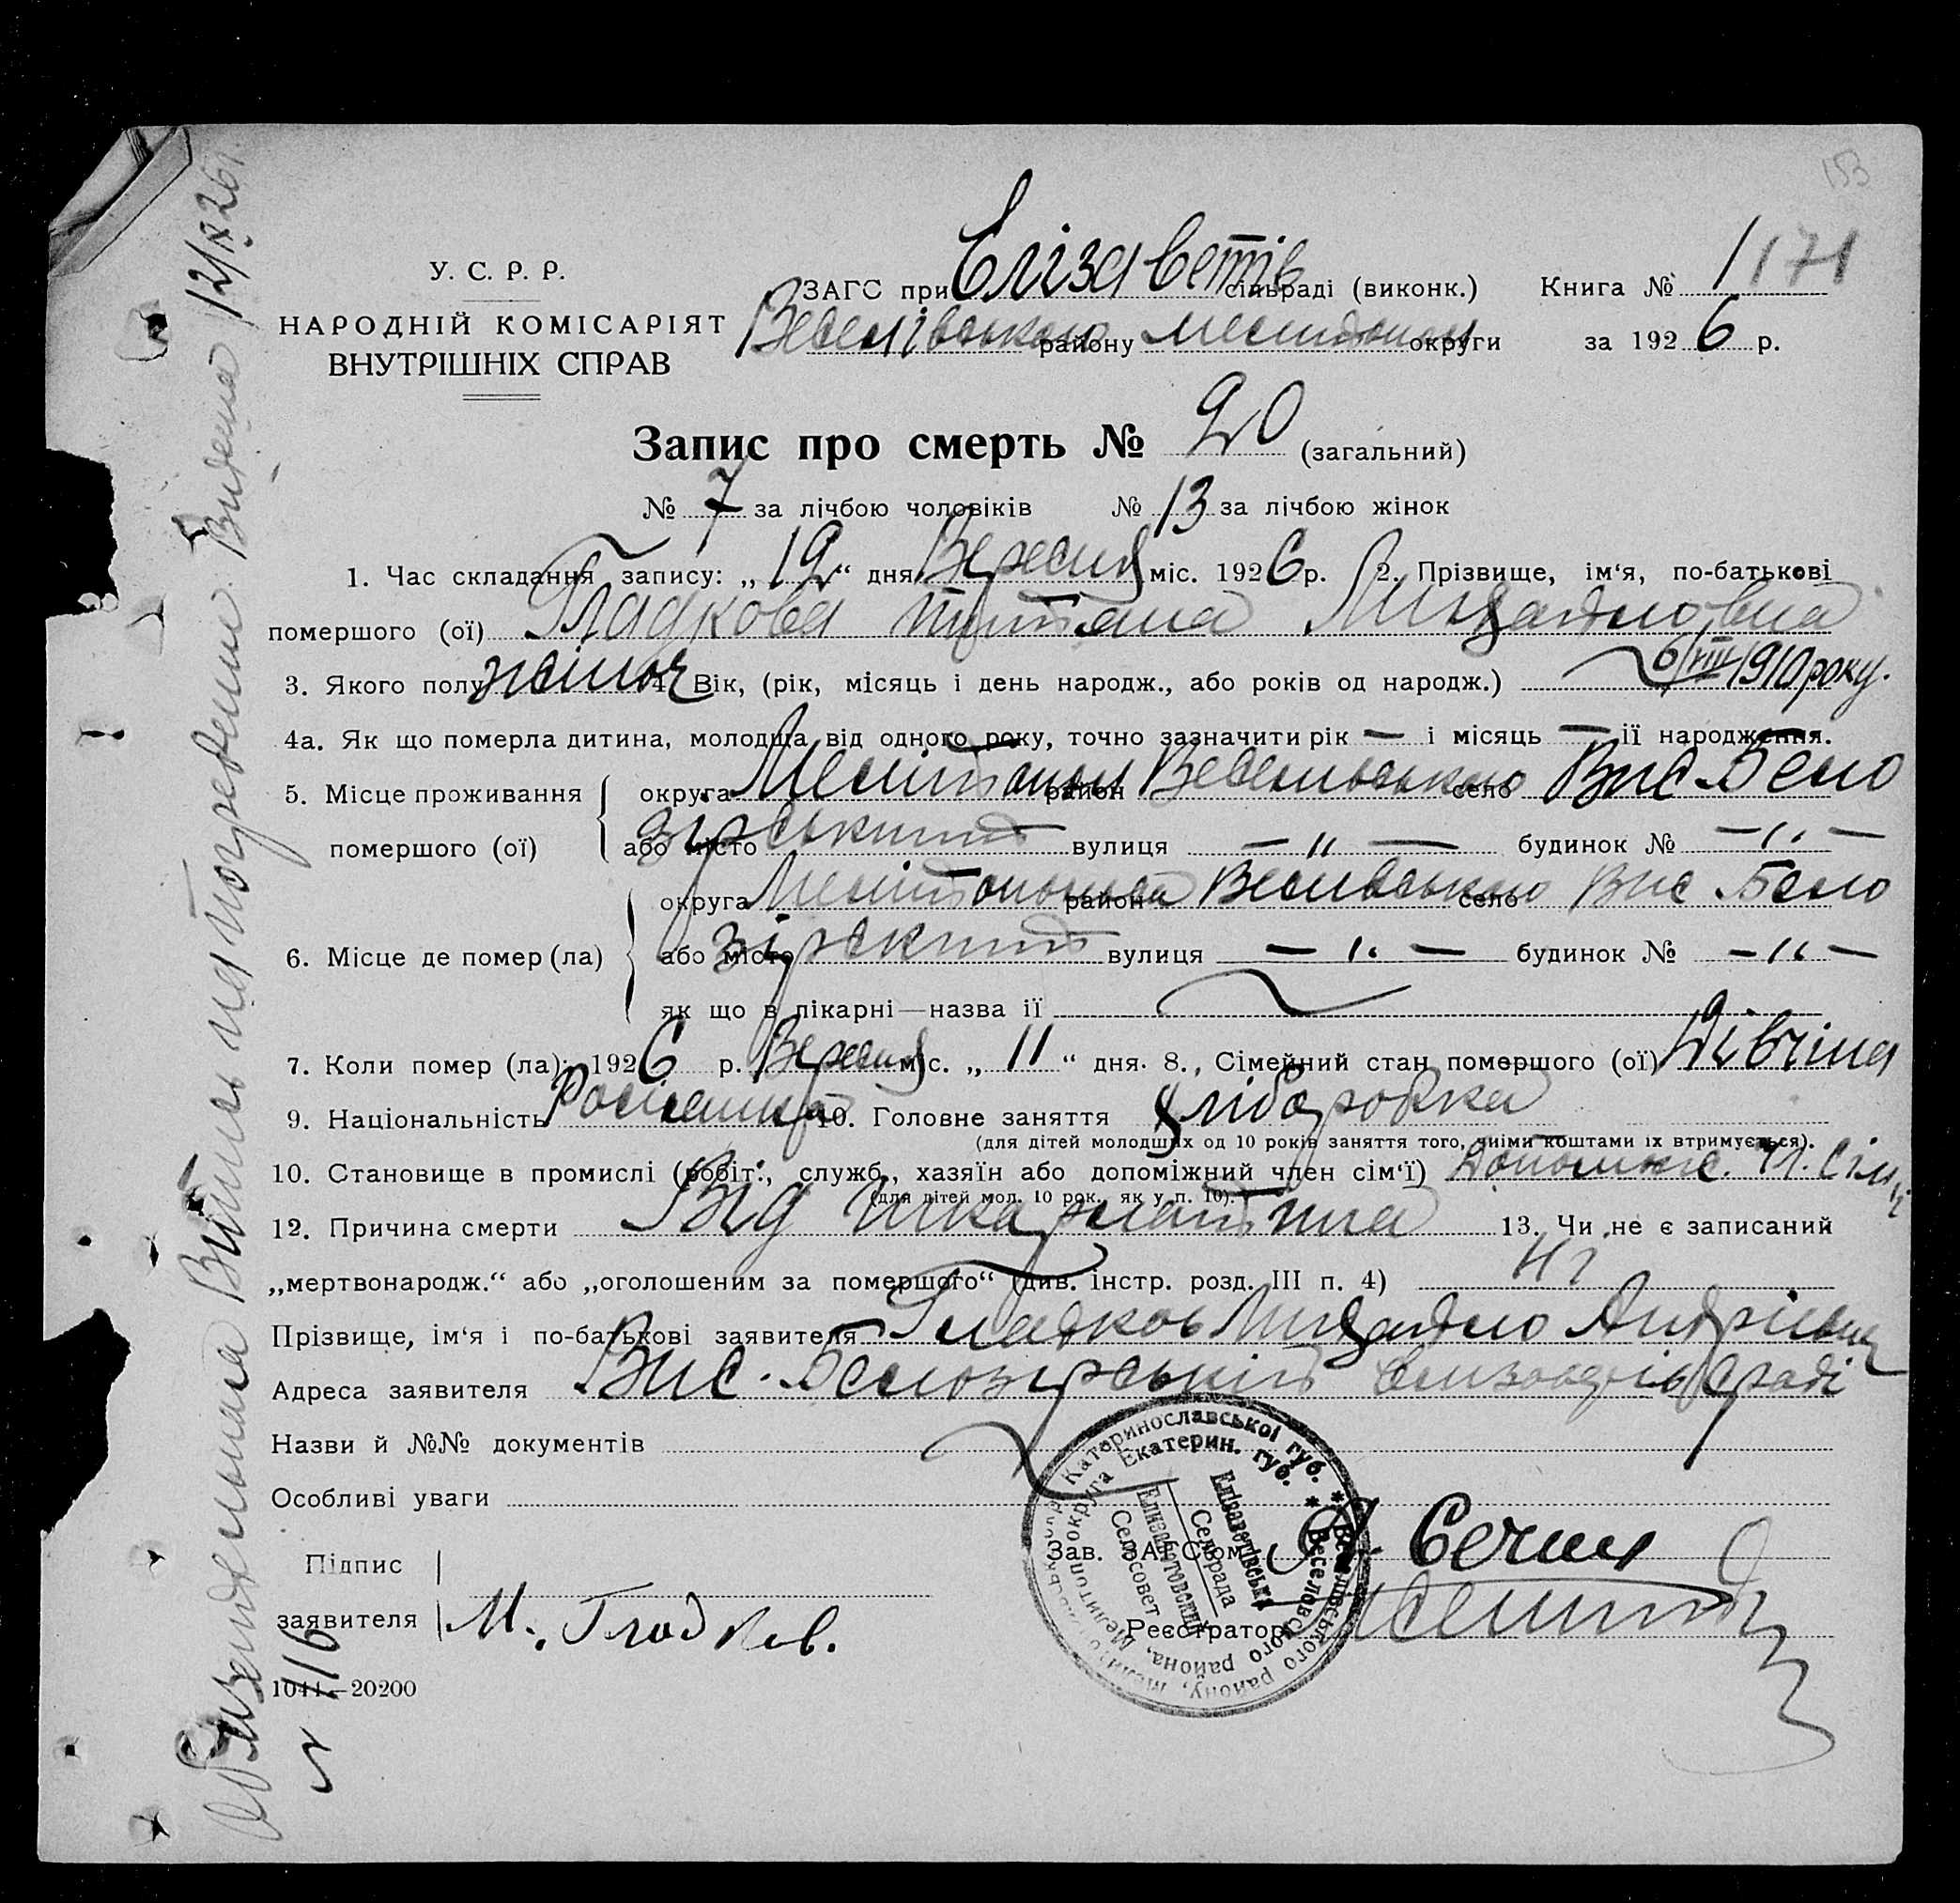 153
У. С. Р. Р.
НАРОДНІЙ КОМІСАРІЯТ
ВНУТРІШНІХ СПРАВ
ЗАГС при Єлізаветів сільраді (виконк.) Книга № 1 171
Веселівського району Мелітоп округи за 1926 р.
Запис про смерть № 20 (загальний)
№ 7 за лічбою чоловіків № 13 за лічбою жінок
1. Час складання запису: „12“ дня Вересня міс. 1926 р. 2. Прізвище, ім‘я, по-батькові
помершого (ої) Гладкова Тітяна Михайловна
3. Якого полу жіноч 4. Вік, (рік, місяць і день народж., або років од народж.) 6/VIII 1910 року.
4а. Як що померла дитина, молодща від одного року, точно зазначити рік — і місяць — її народження.
5. Місце проживання округа Мелітопол район Веселівського село Вис Бело
помершого (ої) або місто зірський вулиця — „ — будинок № — „ —
округа Мелітопольська район Веселівського село Вис Бело
6. Місце де помер (ла) або місто зірский вулиця — „ — будинок № — „ —
як що в лікарні—назва її
7. Коли помер (ла): 1926 р. Вересня міс. „11“ дня. 8., Сімейний стан помершого (ої) Дівчіна
9. Національність Росіянка 10. Головне заняття хліборобка
(для дітей молодших од 10 років заняття того, чиїми коштами їх втримується).
10. Становище в промислі (робіт., служб., хазяїн або допоміжний член сім‘ї) Допоміжн. чл. сімї
(для дітей мол. 10 рок., як у п. 10).
12. Причина смерти Від шкарлатіна 13. Чи не є записаний
„мертвонародж.“ або „оголошеним за помершого“ (див. інстр. розд. III п. 4) Ні
Прізвище, ім‘я і по-батькові заявителя Гладков Михайло Андрієвич
Адреса заявителя Вис. Белозірський
Назви й №№ документів
Особливі уваги
Підпис
заявителя М. Гладков.
Зав. ЗАГСом Сечин
Реєстратор
1041—20200
Катеринославської губ. * Веселівського району,
округа Екатерин. губ. * Веселовского района, Мелитоп
Елізаветівська
Сельрада
Елизаветовский
Сельсовет
Витись на погребение. Видена 12/IX 26 г.
№ 716